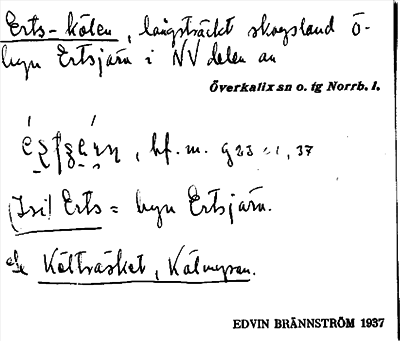 Erts-kölen, långsträckt skogsland ö-
byn Ertsjärn i NV delen av
Överkalix sn o. tg Norrb. l.
, bf. m. 923 , 37
Erts = byn Ertsjärn.
Se Költräsket, Kölmyran.
EDVIN BRÄNNSTRÖM 1937